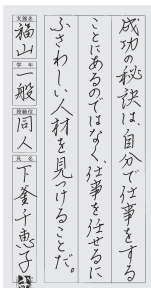 成功の秘訣は自分で仕事をする
ことにあるのではなく、仕事を任せるに
ふさわしい人材を見つけることだ。
支部名 福山 学年 一般 段級位 同人 氏名 下釜千恵子